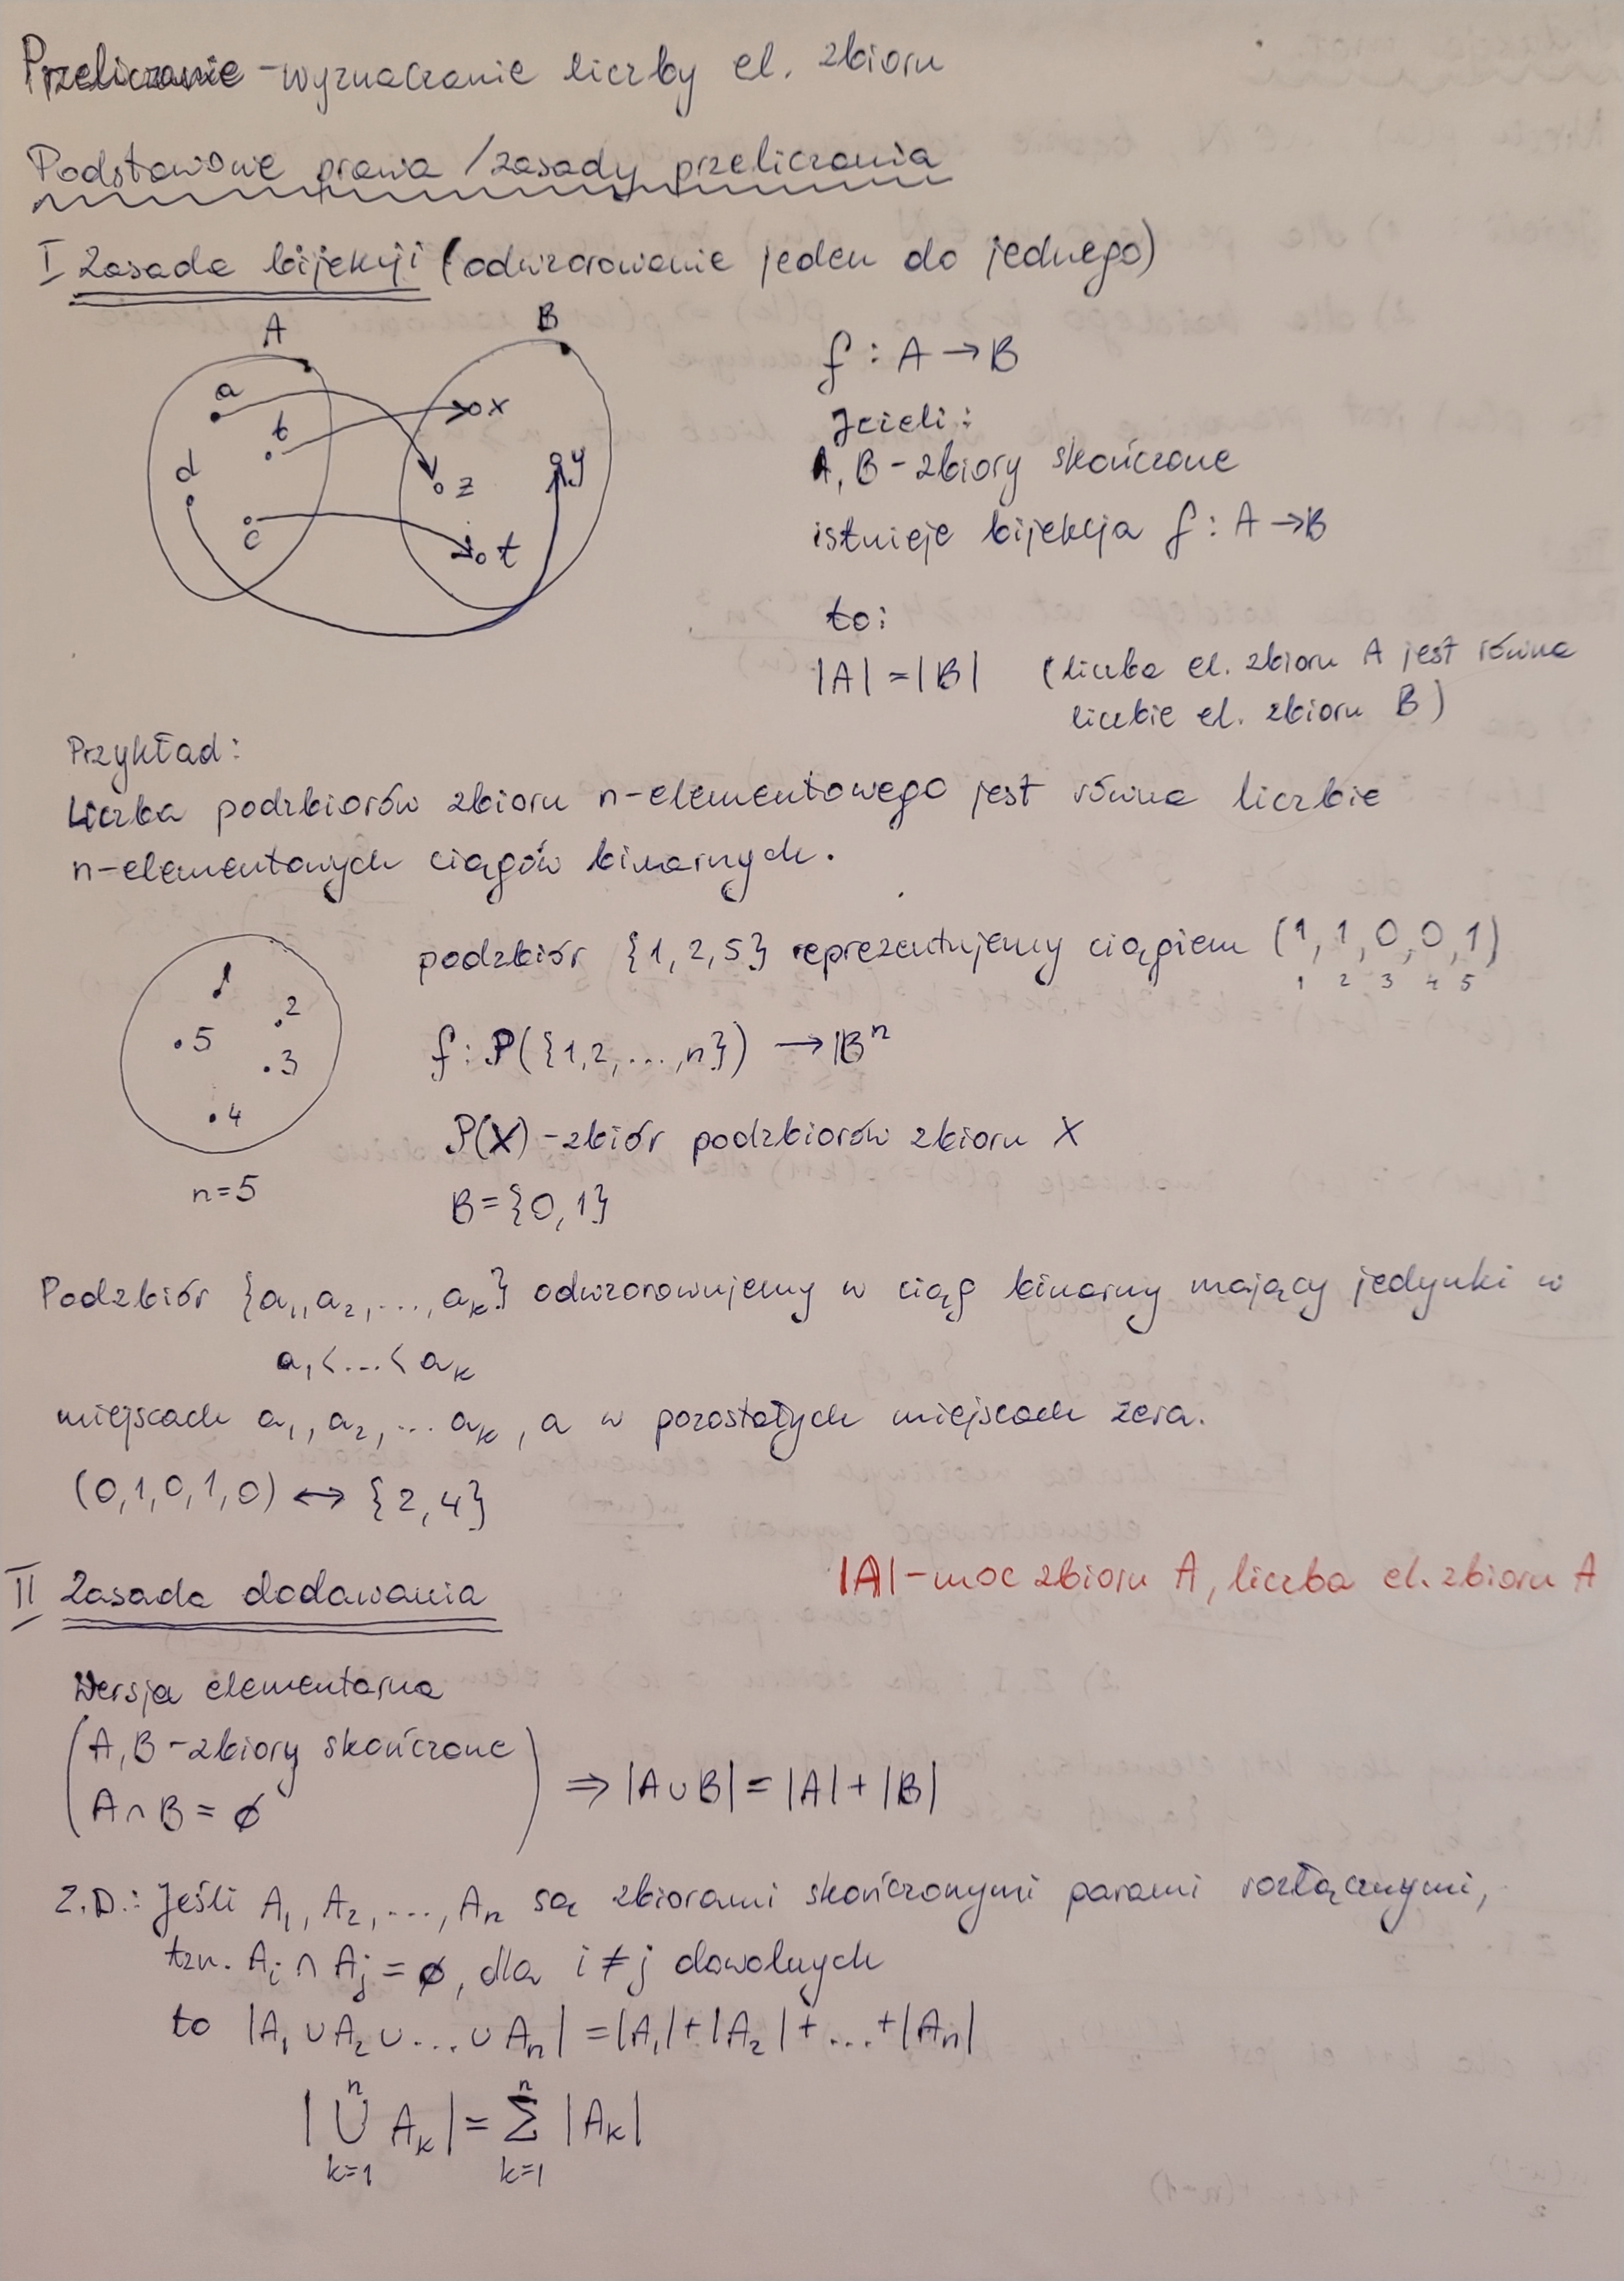 Przeliczanie - wyznaczanie liczby el. zbioru
Podstawowe prawa / zasady przeliczania
I Zasada bijekcji (odwzorowanie jeden do jednego)
A
B
a
b
d
c
x
z
y
t
f : A → B
Jeżeli:
A, B - zbiory skończone
istnieje bijekcja f : A → B
to:
|A| = |B| (liczba el. zbioru A jest równa
liczbie el. zbioru B)
Przykład:
Liczba podzbiorów zbioru n-elementowego jest równa liczbie
n-elementowych ciągów binarnych.
podzbiór {1, 2, 5} reprezentujemy ciągiem (1, 1, 0, 0, 1)
1 2 3 4 5
1
2
5
3
4
n=5
f : P({1,2,...,n}) → Bⁿ
P(X) - zbiór podzbiorów zbioru X
B = {0, 1}
Podzbiór {a₁, a₂, ..., aₖ} odwzorowujemy w ciąg binarny mający jedynki w
a₁ < ... < aₖ
miejscach a₁, a₂, ... aₖ, a w pozostałych miejscach zera.
(0,1,0,1,0) ↔ {2, 4}
|A| - moc zbioru A, liczba el. zbioru A
II Zasada dodawania
Wersja elementarna
(A, B - zbiory skończone
A ∩ B = ∅) ⇒ |A ∪ B| = |A| + |B|
Z.D.: Jeśli A₁, A₂, ..., Aₙ są zbiorami skończonymi parami rozłącznymi,
tzn. Aᵢ ∩ Aⱼ = ∅, dla i ≠ j dowolnych
to |A₁ ∪ A₂ ∪ ... ∪ Aₙ| = |A₁| + |A₂| + ... + |Aₙ|
n n
| ∪ Aₖ | = Σ |Aₖ|
k=1 k=1